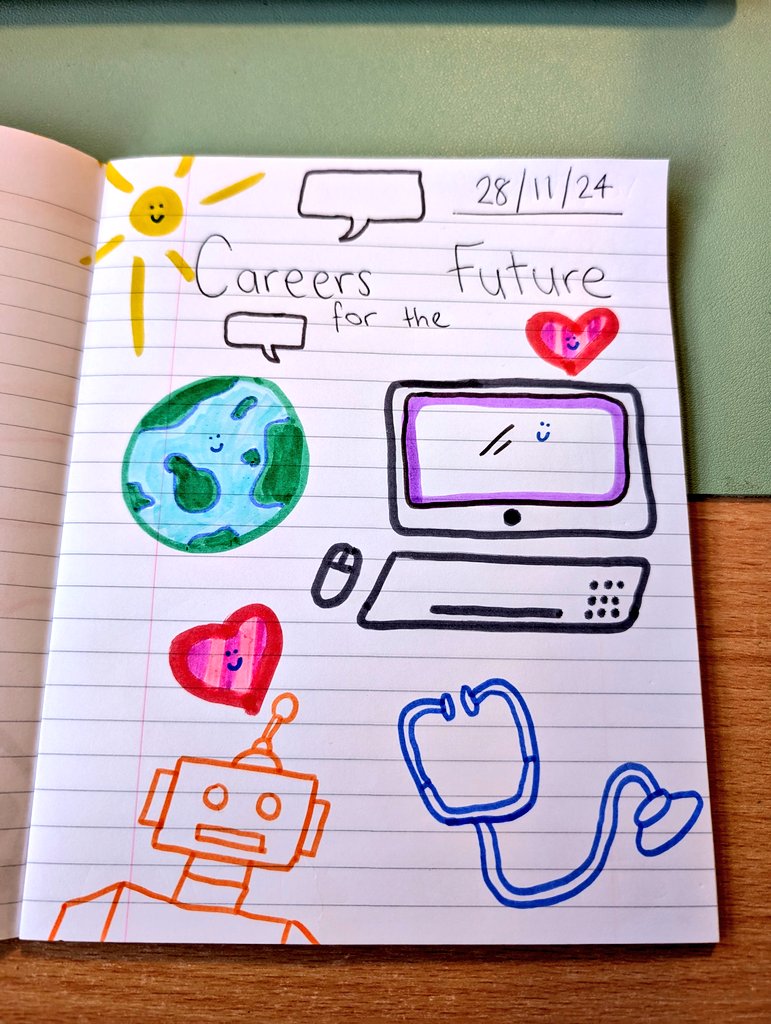 28/11/24
Careers Future
for the